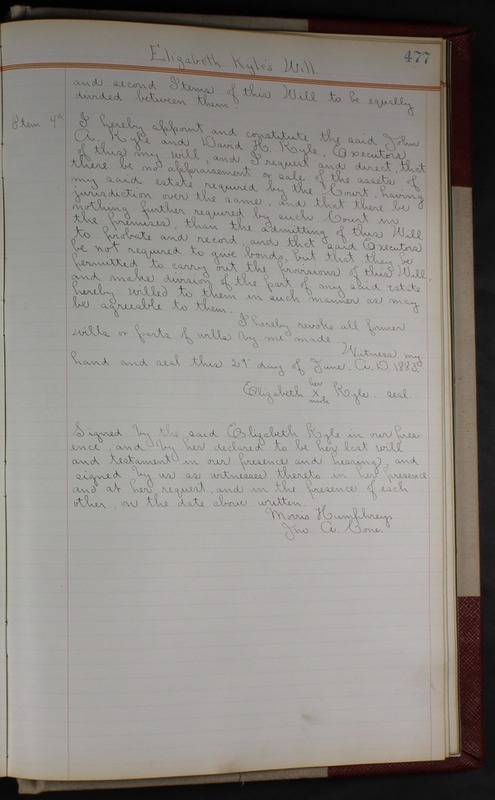 477
Elizabeth Kyle's Will.
and second Items of this Will to be equally
divided between them.
Item 4th I hereby appoint and constitute the said John
A. Kyle and David H. Kyle, Executors
of this my will, and I request and direct, that
there be no appraisement or sale of the assets of
my said estate required by the Court, having
jurisdiction over the same, and that there be
nothing further required by such Court in
the premises, than the admitting of this Will
to probate and record, and that said Executors
be not required to give bonds, but that they be
permitted to carry out the provisions of this Will,
and make division of the part of my said estate
hereby willed to them in such manner as may
be agreeable to them.
I hereby revoke all former
wills or parts of wills by me made.
Witness my
hand and seal this 29" day of June, A.D. 1883.
her
Elizabeth X Kyle. seal.
mark
Signed by the said Elizabeth Kyle in our pres
ence, and by her declared to be her last will
and testament in our presence and hearing, and
signed by us as witnesses thereto in her presence
and at her request, and in the presence of each
other, on the date above written.
Morris Humphreys
Jno. A. Cone.